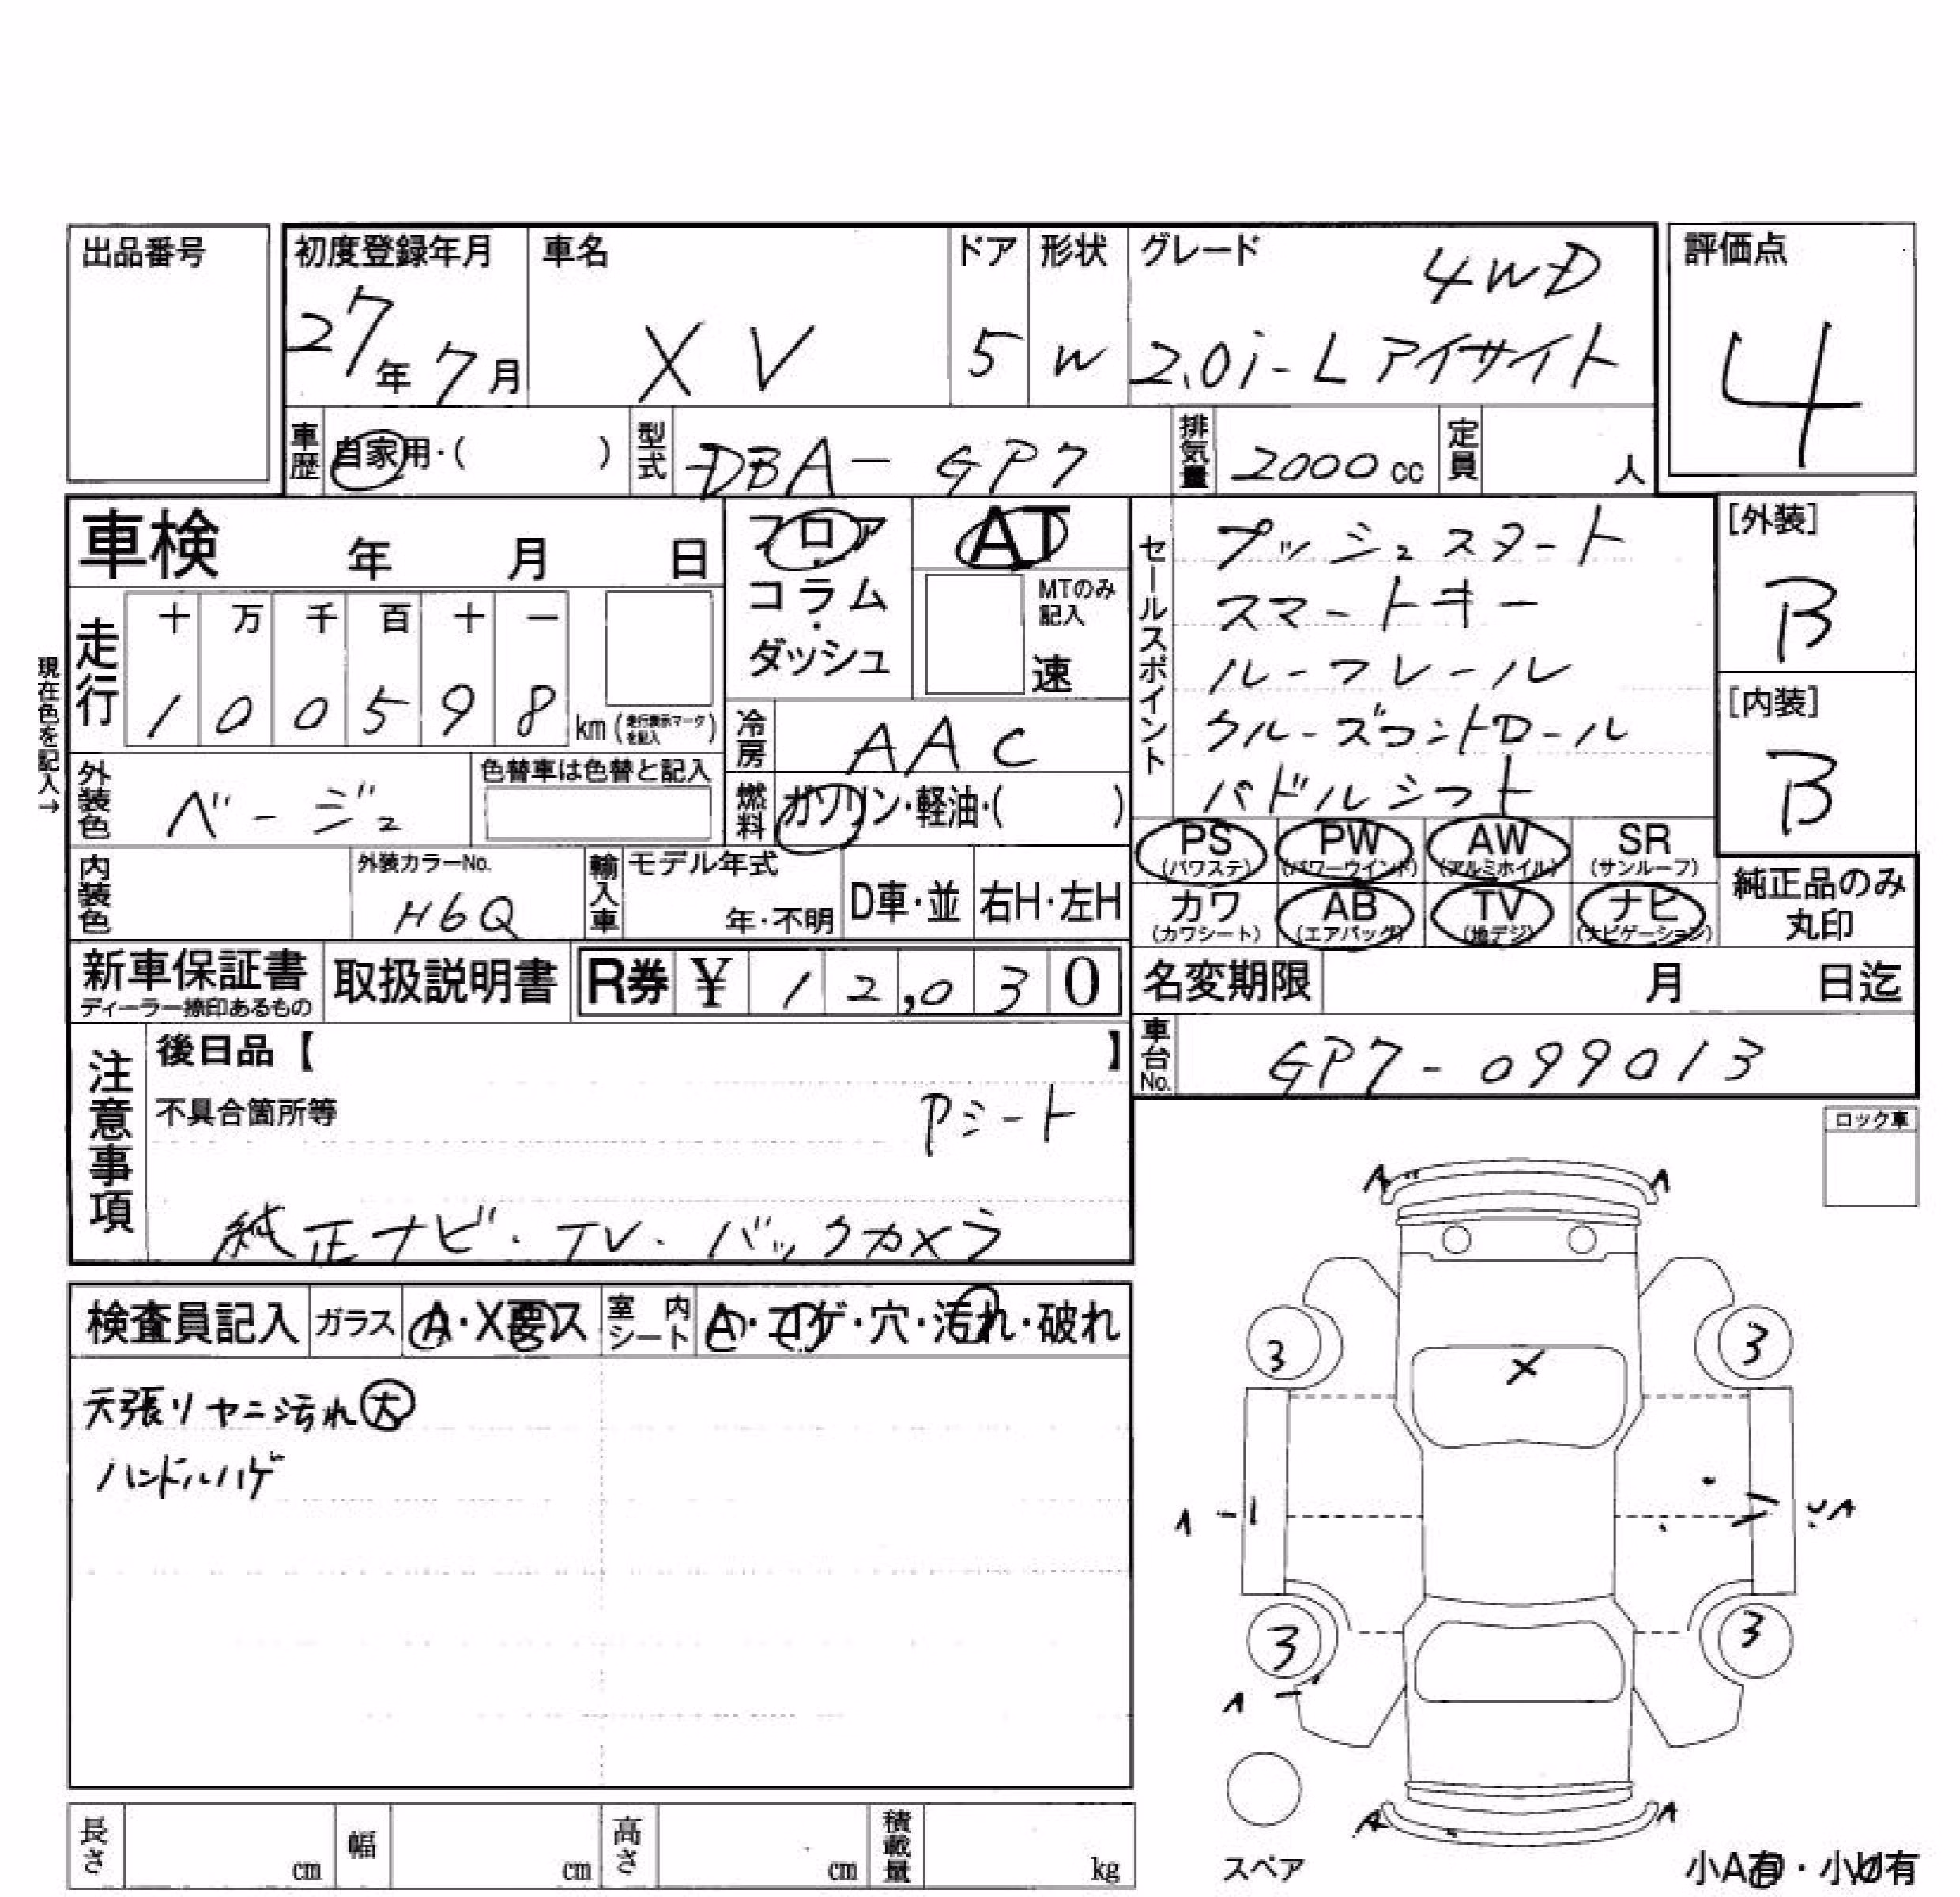 出品番号
初度登録年月
27年 7月
車名
XV
ドア
5
形状
W
グレード
4WD
2.0i-L アイサイト
評価点
4
車歴
自家用・( )
型式
DBA-GP7
排気量
2000 cc
定員
人
車検 年 月 日
フロア
・
コラム
・
ダッシュ
AT
MTのみ
記入
速
セールスポイント
プッシュスタート
スマートキー
ルーフレール
クルーズコントロール
パドルシフト
[外装]
B
[内装]
B
現在色を記入→
走行
十 万 千 百 十 一
1 0 0 5 9 8 km (走行表示マークを記入)
冷房
AAC
外装色
ベージュ
色替車は色替と記入
燃料
ガソリン・軽油・( )
PS (パワステ)
PW (パワーウインド)
AW (アルミホイル)
SR (サンルーフ)
カワ (カワシート)
AB (エアバック)
TV (地デジ)
ナビ (ナビゲーション)
純正品のみ
丸印
内装色
外装カラーNo.
H6Q
輸入車
モデル年式
年・不明
D車・並
右H・左H
新車保証書
ディーラー捺印あるもの
取扱説明書
R券 ¥ 12,030
名変期限 月 日迄
車台No.
GP7-099013
注意事項
後日品【 】
不具合箇所等
Pシート
純正ナビ・TV・バックカメラ
ロック車
検査員記入
ガラス
A・X要ス
室内シート
A・コゲ・穴・汚れ・破れ
天張りヤニ汚れ大
ハンドルハゲ
A A
3 3
X
A A
3 3
A
A A
スペア
小A有・小U有
長さ cm
幅 cm
高さ cm
積載量 kg